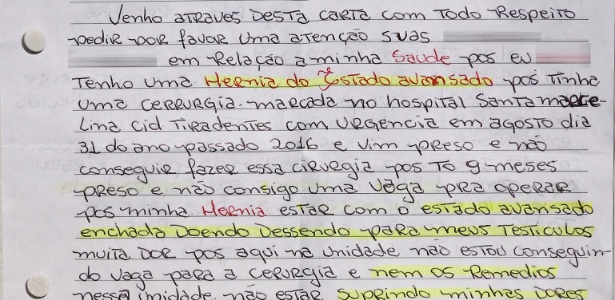 Venho atraves desta carta com todo Respeito
pedir por favor uma atenção suas
em Relação a minha Saude pos eu
Tenho uma Hernia do Estado avansado pos tinha
uma cerurgia. marcada no hospital Santa marce
Lina cid Tiradentes com urgencia em agosto dia
31 do ano passado 2016 e vim preso e não
conseguir fazer essa cirurgia pos to 9 meses
preso e não consigo uma vaga pra operar
pos minha Hernia estar com o estado avansado
enchada Doendo Dessendo para meus Testiculos
muita Dor pos aqui na unidade não estou conseguin
do vaga para a cerurgia e nem os Remedios
nessa unidade não estar suprindo minhas dores